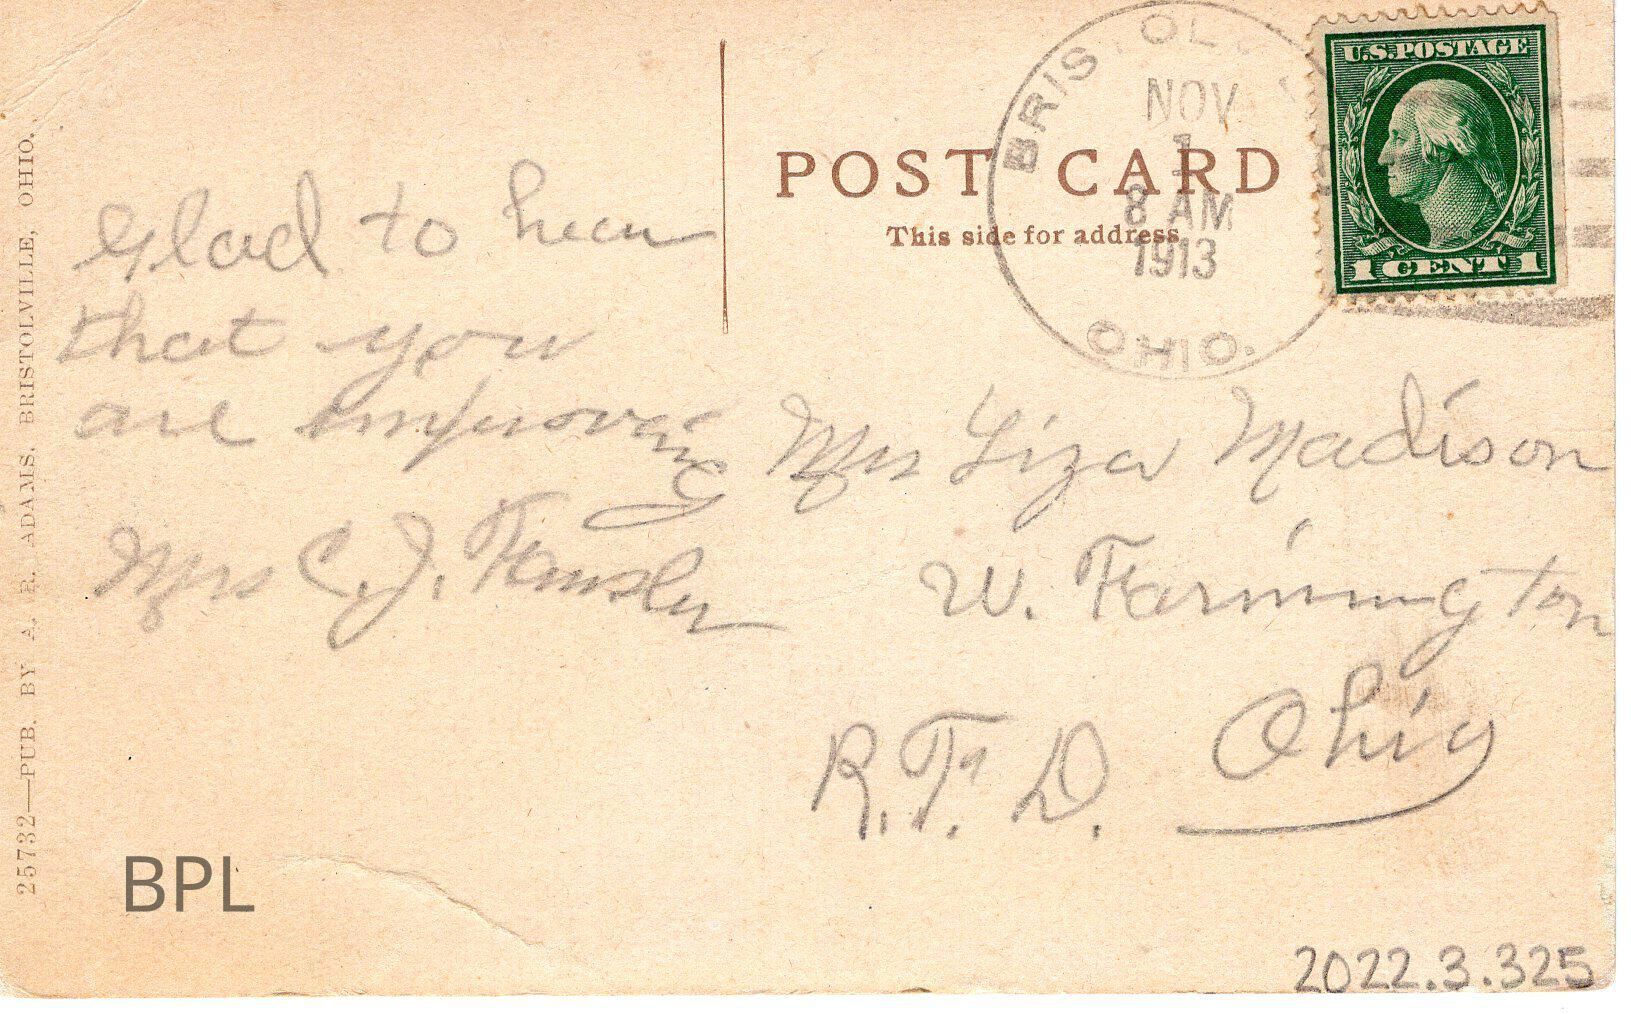 25732—PUB. BY A. R. ADAMS, BRISTOLVILLE, OHIO.
Glad to hear
that you
are improving
Mrs C. J.
POST CARD
This side for address
BRIS OL
NOV
1
8 AM
1913
OHIO.
U.S. POSTAGE
1 CENT 1
Mrs Liza Madison
W. Farmington
Ohio
R.F.D.
BPL
2022.3.325